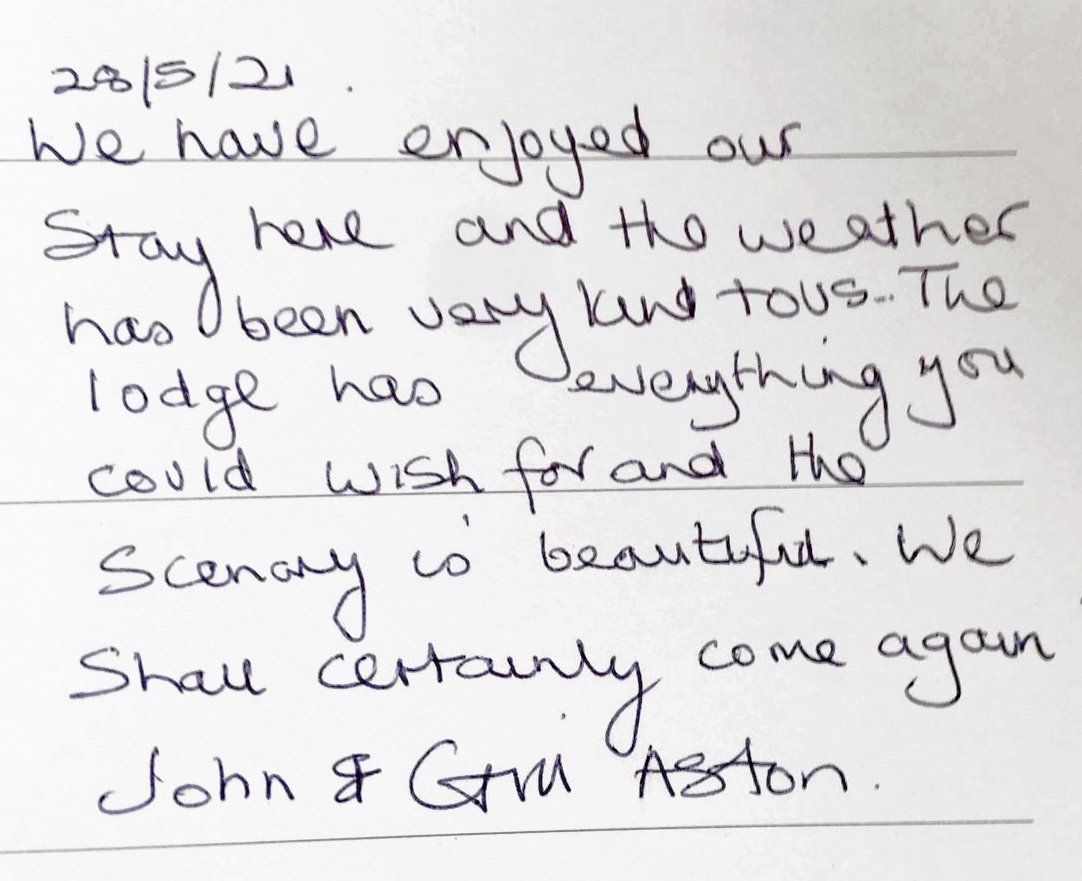 28/5/21.
We have enjoyed our
Stay here and the weather
has been very kind to us.. The
lodge has everything you
could wish for and the
Scenary is beautiful. We
Shall certainly come again
John & Gill Aston.